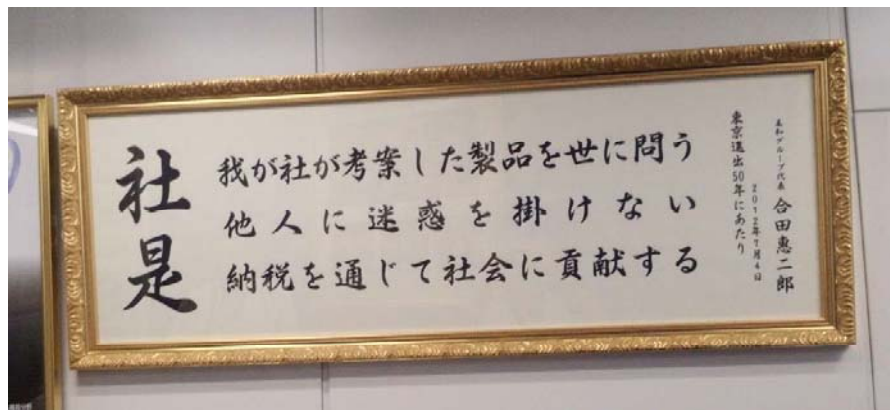 社是
我が社が考案した製品を世に問う
他人に迷惑を掛けない
納税を通じて社会に貢献する
東京進出50年にあたり
2012年7月4日
グループ代表 合田惠二郎